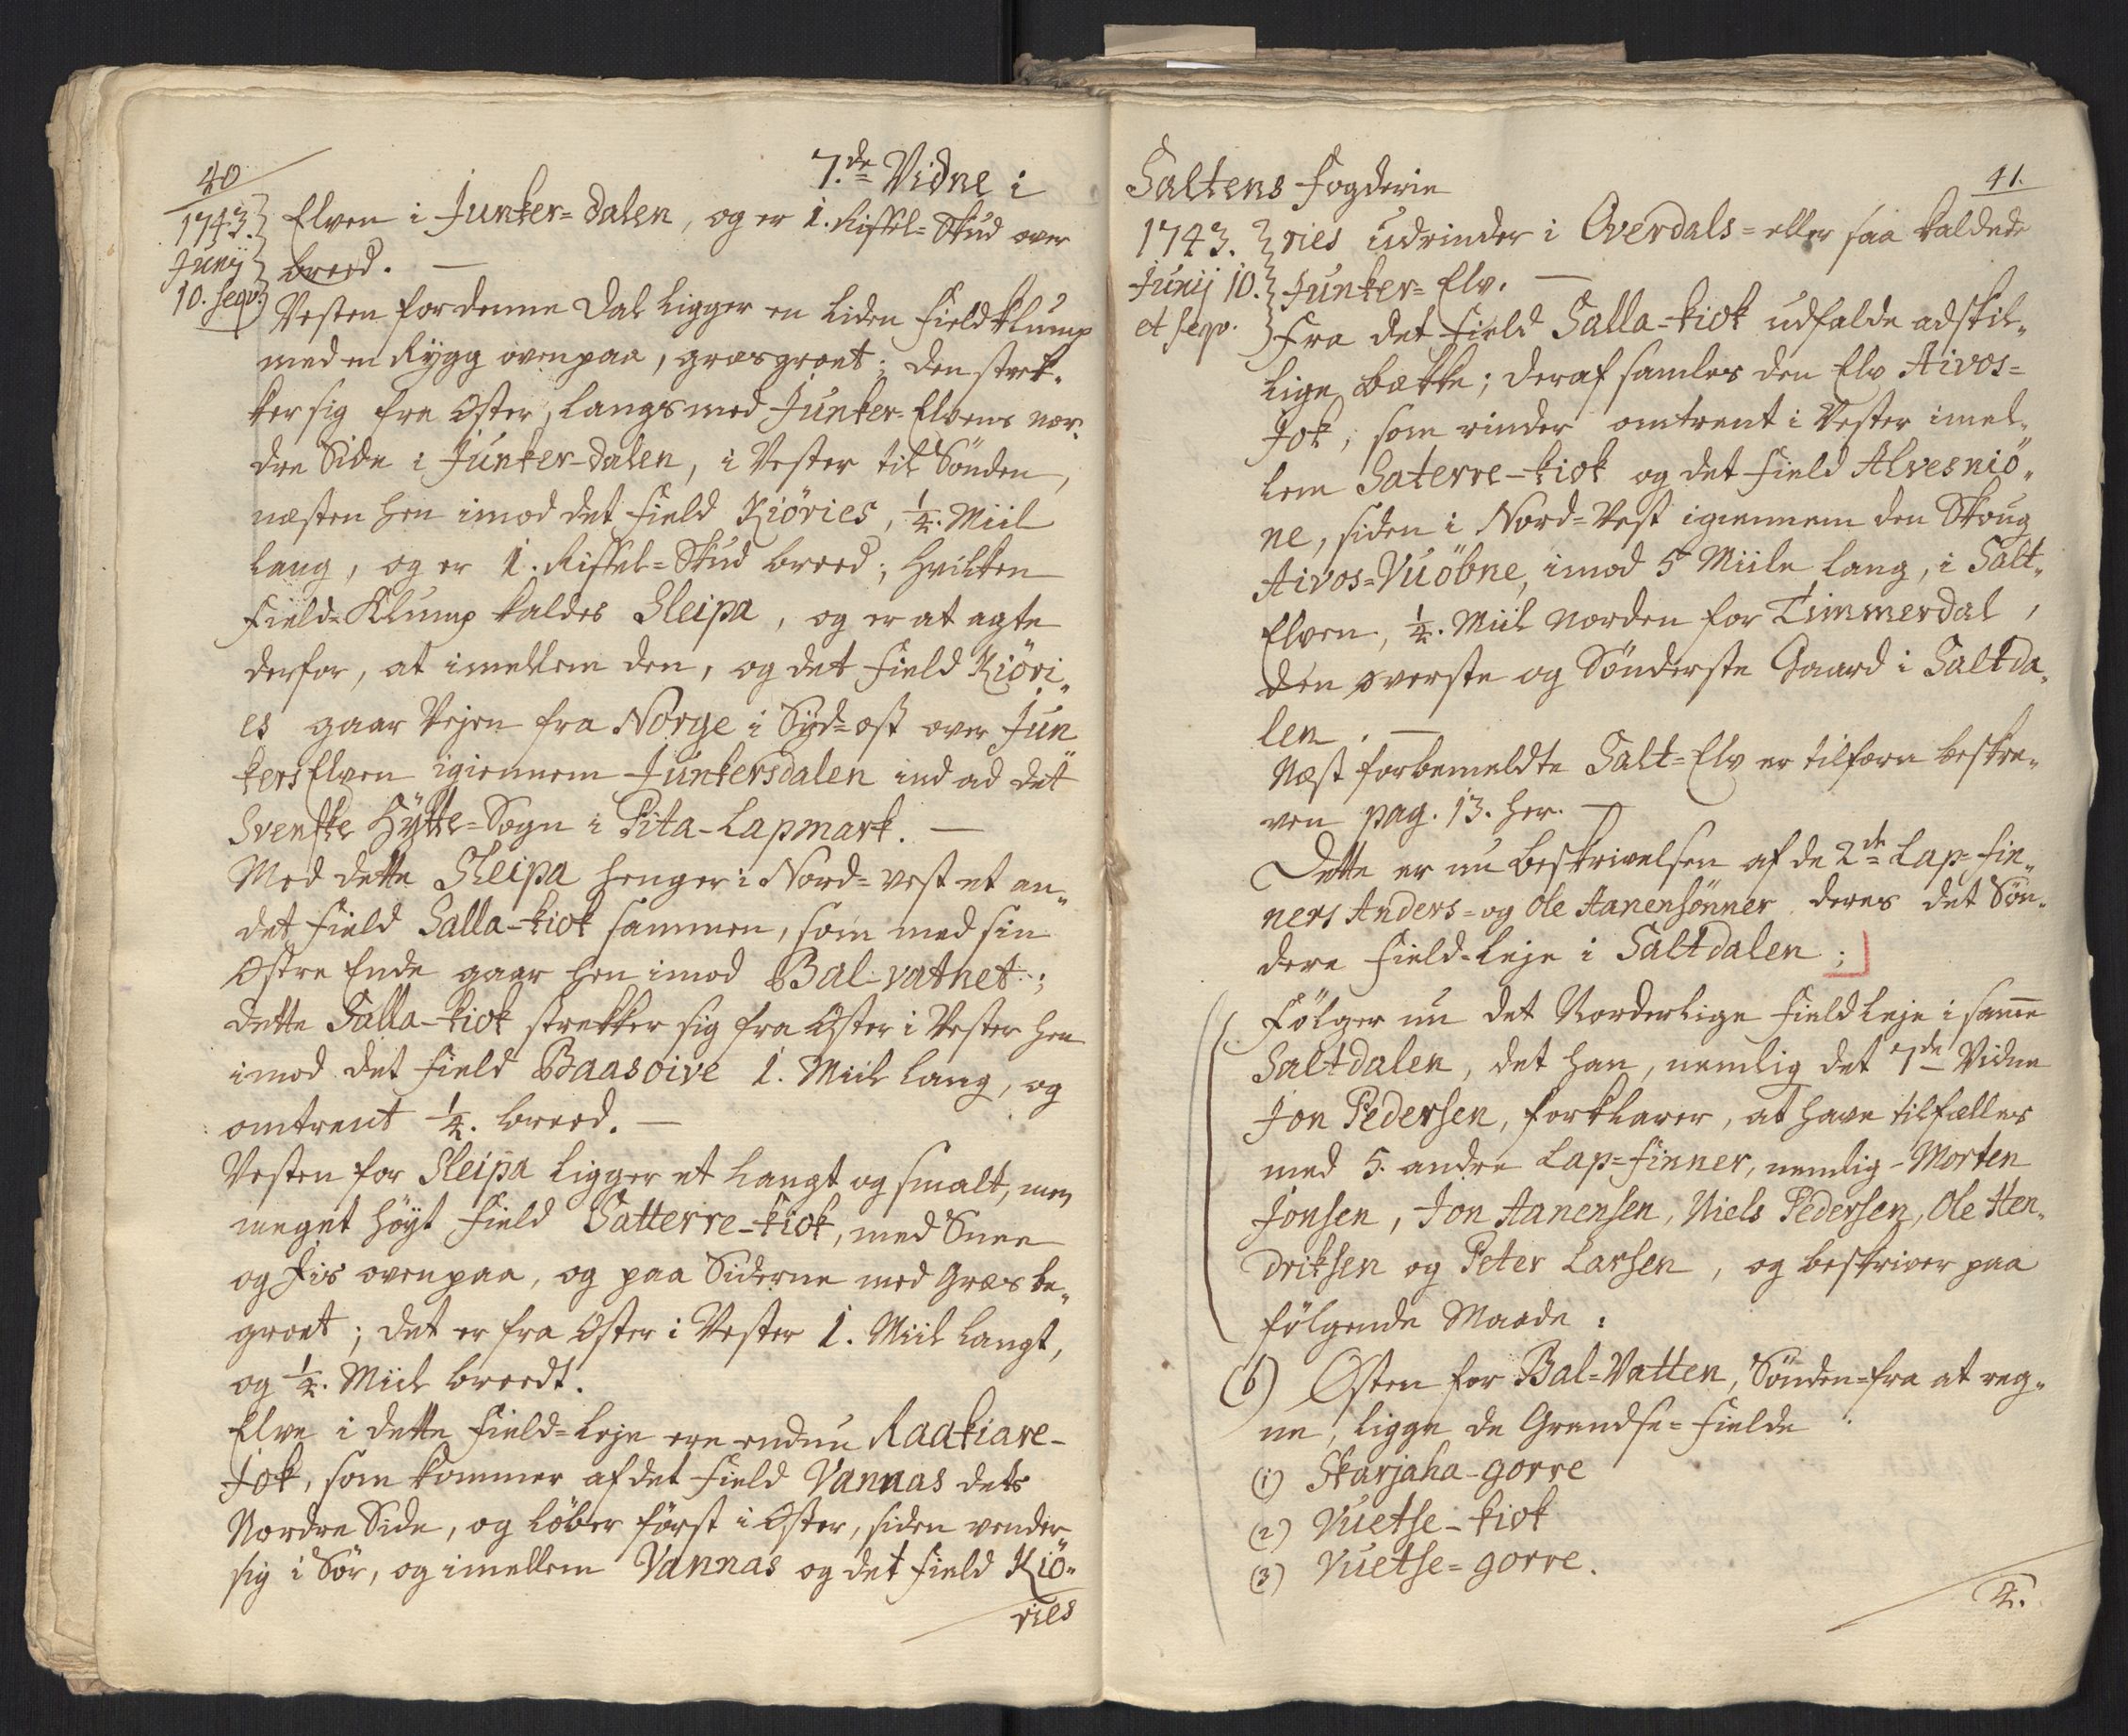 40
7.de Vidne i
1743.
Junij
10. seqv.
Elven i Junker-dalen, og er 1. Riffel-Skud over
breed. —
Vesten for denne Dal ligger en liden Fieldklump
med en Rÿgg ovenpaa, græsgroet; den strek-
ker sig fra Oster, langs med Junker-Elvens nor-
dre Side i Junker-dalen, i Vester til Sönden,
næsten hen imod det Field Kiöries, 1/4. Miil
lang, og er 1. Riffel-Skud breed; hvilken
Field-Klump kaldes Sleipa, og er at agte
derfor, at imellem den, og det Field Kiöri-
es gaar Vejen fra Norge i Syd-ost over Jun
kers Elven igiennem Junkersdalen ind ad det
Svenske Hÿtte-Sogn i Pita-Lapmark. —
Med dette Sleipa henger i Nord-vest et an-
det Field Salla-kiok sammen, som med sin
Ostre Ende gaar hen imod Bal-vatnet;
dette Salla-kiok strekker sig fra Oster i Vester hen
imod det Field Baasoive 1. Miil lang, og
omtrent 1/4. breed. —
Vesten for Sleipa ligger et langt og smalt, men
meget höyt Field Satterre-kiok, med Snee
og Jis ovenpaa, og paa Siderne med Græs be-
groet; det er fra Oster i Vester 1. Miil langt,
og 1/4. Miil breedt.
Elve i dette Field-Leje ere endnu Raakiare-
Jok, som kommer af det Field Vannas dets
Nordre Side, og löber först i Oster, siden vender
sig i Sör, og imellem Vannas og det Field Kiö-
ries
41.
Saltens Fogderie
1743.
Junij 10.
et seqv.
ries udrinder i Overdals- eller saa kaldede
Junker-Elv. —
Fra det Field Salla-kiok udfalde adskil-
lige Bække; deraf samles den Elv Aivos-
Jok, som rinder omtrent i Vester imel-
lem Saterre-kiok og det Field Alvesniö-
ne, siden i Nord-Vest igiennem den Skoug
Aivos-Vuöbne, imod 5 Miile lang, i Salt-
Elven, 1/4. Miil Norden for Timmerdal,
den överste og Sönderste Gaard i Saltda-
len. —
Næst forbemeldte Salt-Elv er tilforn beskre-
ven pag. 13. her. —
Dette er nu Beskrivelsen af de 2de Lap-Fin-
ners Anders- og Ole Aanensönner deres det Sön-
dere Field-Leje i Saltdalen;
Fölger nu det Norderlige Field Leje i samme
Saltdalen, det han, nemlig det 7de Vidne
Jon Pedersen, forklarer, at have tilfælles
med 5. andre Lap-Finner, nemlig - Morten
Jonsen, Jon Aanensen, Niels Pedersen, Ole Hen-
driksen og Peter Larsen, og beskriver paa
fölgende Maade:
(b) Østen for Bal-Vatten, Sönden-fra at reg-
ne, ligge de Grendse-Fielde
(1) Skarjaha-gorre
(2) Vuetse-kiok
(3) Vuetse-gorre.
4.